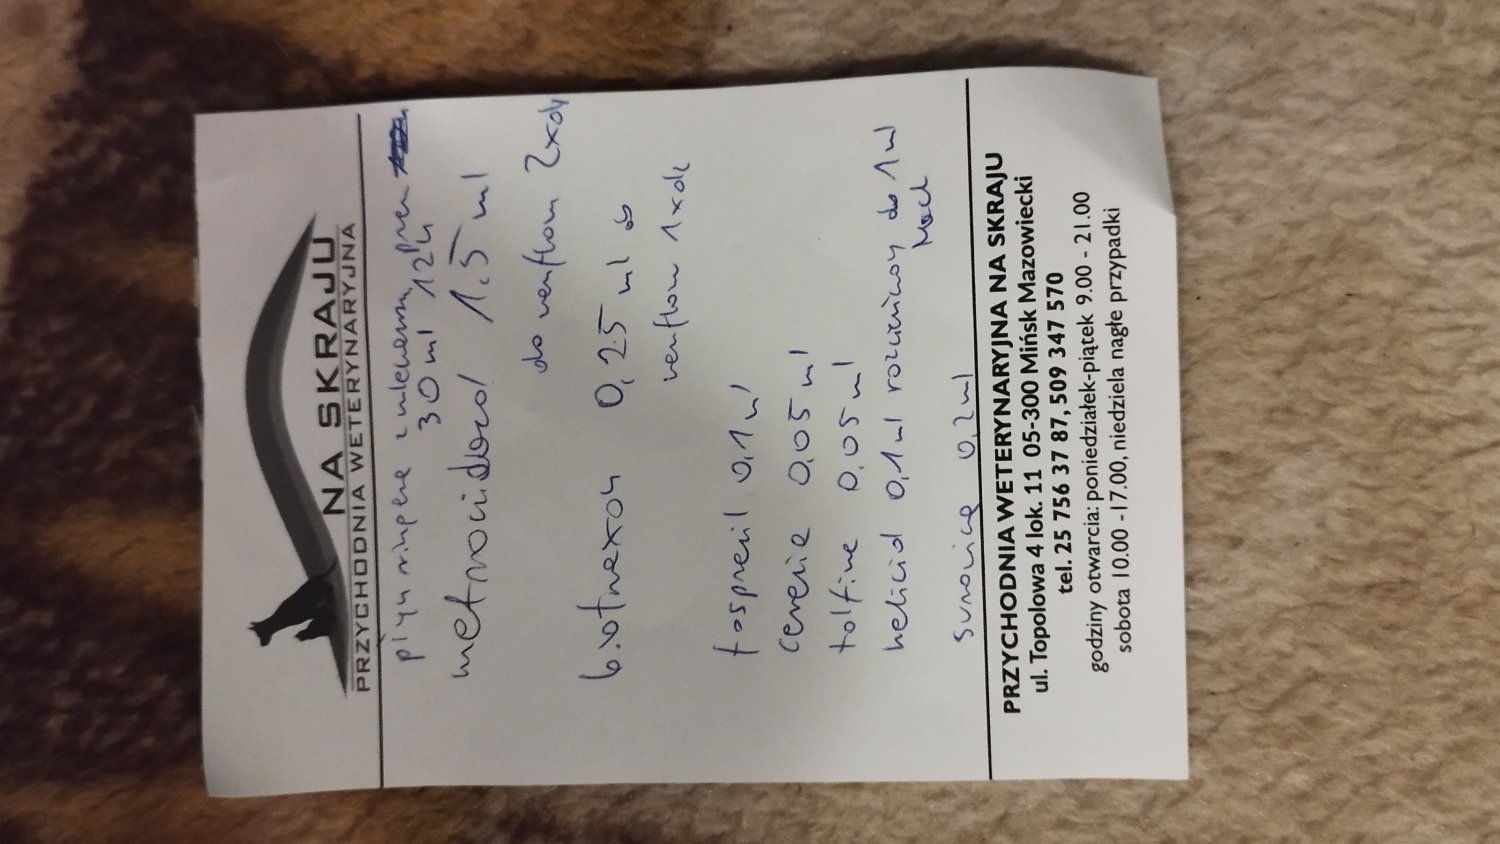 NA SKRAJU
PRZYCHODNIA WETERYNARYJNA
płyn ringera z mleczanem, przez
30 ml 12h
metronidazol 1,5 ml
do wenflonu 2xdz
biotraxon 0,25 ml do
wenflonu 1xdz
fospreni l 0,1 ml
cerenia 0,05 ml
tolfine 0,05 ml
helicid 0,1 ml rozcieńczony do 1 ml
NaCl
surowicę 0,2 ml
PRZYCHODNIA WETERYNARYJNA NA SKRAJU
ul. Topolowa 4 lok. 11 05-300 Mińsk Mazowiecki
tel. 25 756 37 87, 509 347 570
godziny otwarcia: poniedziałek-piątek 9.00 - 21.00
sobota 10.00 -17.00, niedziela nagłe przypadki